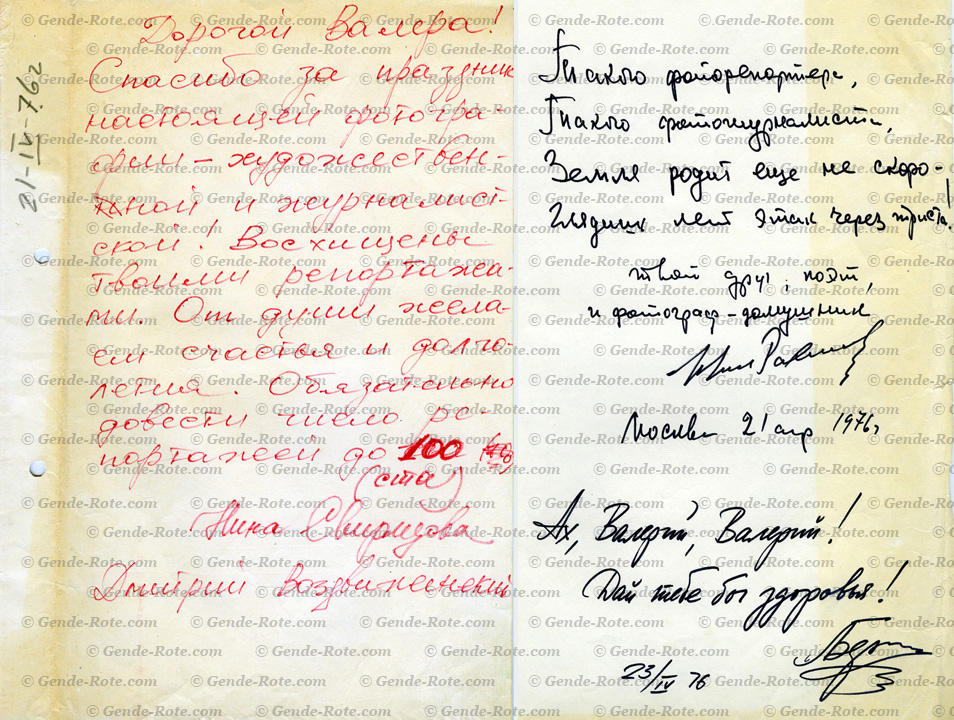 Дорогой Валера!
Спасибо за праздник
настоящей фотогра-
фии – художествен-
ной и журналист-
ской! Восхищены
твоими репортажа-
ми. От души жела-
ем счастья и долго-
летия. Обязательно
довести число ре-
портажей до 100
(ста)
Нина Свиридова
Дмитрий Воздвиженский
21-IV-76г
Такого фоторепортера,
Такого фотожурналиста,
Земля родит еще не скоро -
Глядишь лет этак через триста!
твой друг, поэт,
и фотограф-домушник
Москва 21 апр 1976г
Ах, Валерий, Валерий!
Дай тебе бог здоровья!
23/IV 76
© Gende-Rote.com